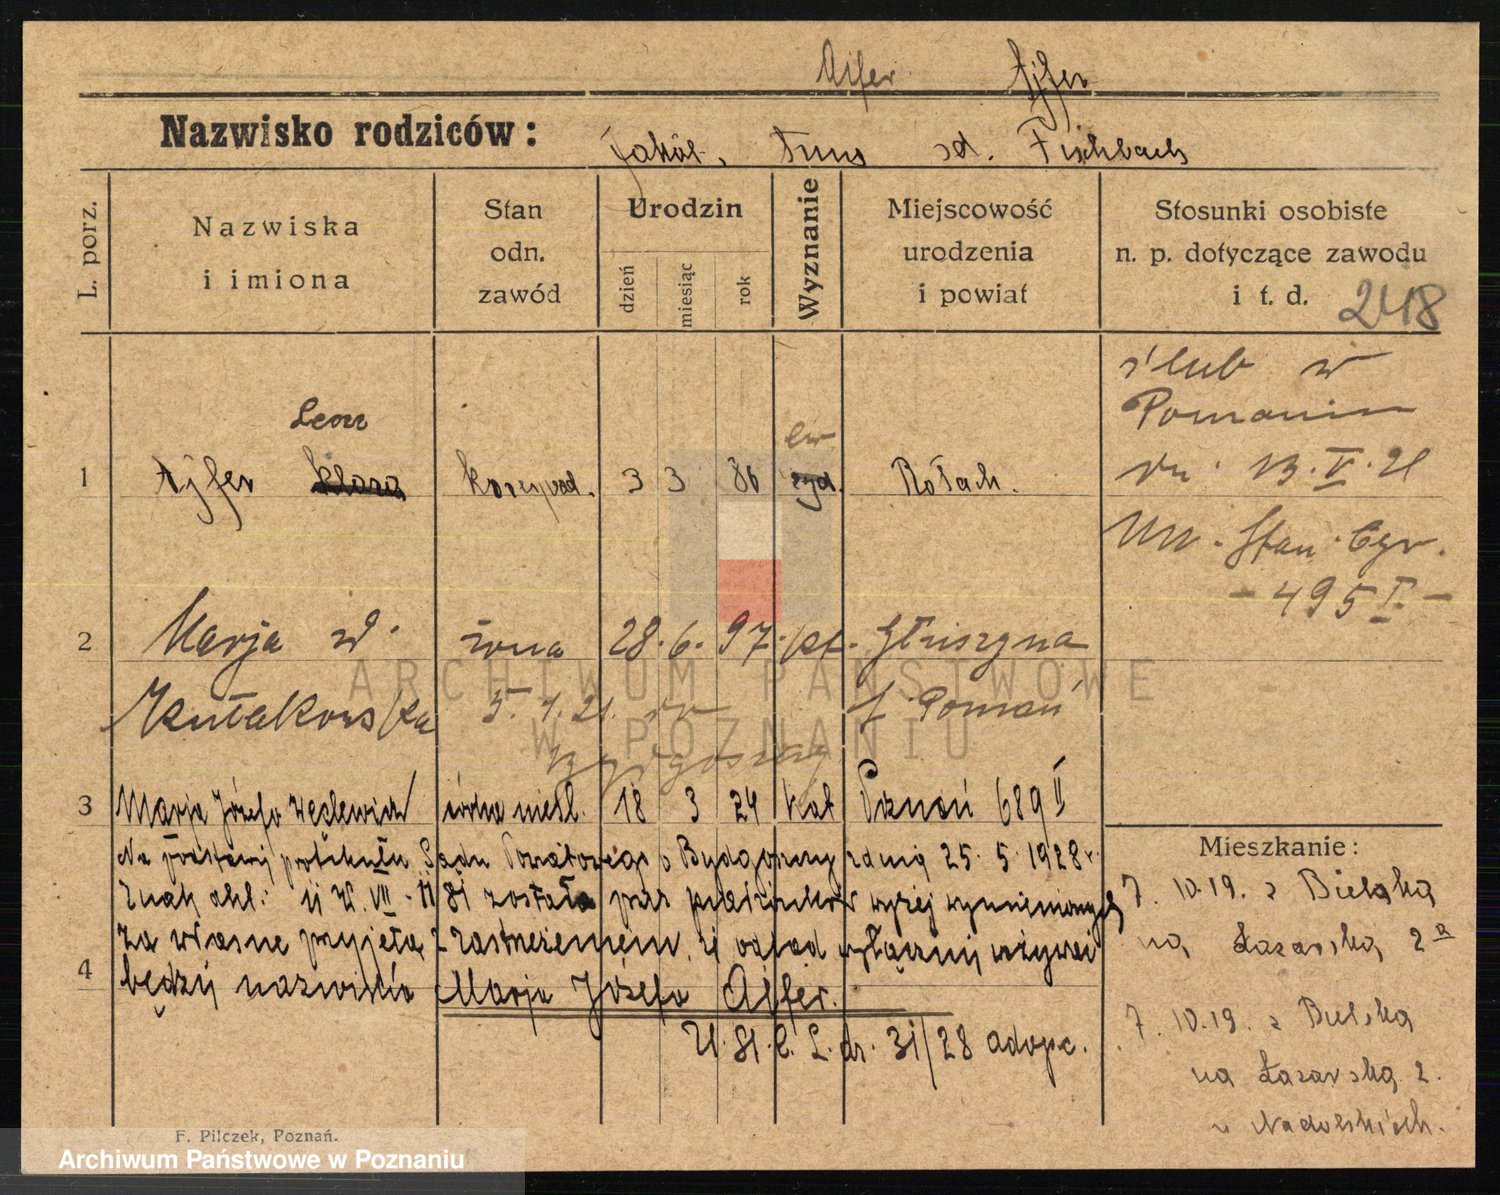 Aifer Ajfer
Nazwisko rodziców:
Jakób, sd. Fischbach
L. porz.
Nazwiska
i imiona
Stan
odn.
zawód
Urodzin
dzień
miesiąc
rok
Wyznanie
Miejscowość
urodzenia
i powiat
Stosunki osobiste
n. p. dotyczące zawodu
i t. d. 248
ślub w
Poznaniu
dn. 13.V.21
Stan. Cyw.
- 495 I. -
Leon
ew
1 Ajfer Klara 3 3 86 żyd.
2 Marja żona 28.6.97 kat. Głuszyna
5.1.21.
Bydgoszczy
3 Marja Józefa córka 18 3 24 kat Poznań 689 II
Na Sądu Powiatowego w Bydgoszczy z dnia 25.5.1928 r.
Znak akt: została przez wyżej wymienionych
za własne przyjęta z zastrzeżeniem, iż odtąd używać
4 będzie nazwiska Marja Józefa Aifer.
31/28 adopc.
Mieszkanie:
7.10.19. z Bielska
na Łazarską 2a
7.10.19. z Bielska
na Łazarską 2.
u Nadolskich.
F. Pilczek, Poznań.
ARCHIWUM PAŃSTWOWE
W POZNANIU
Archiwum Państwowe w Poznaniu